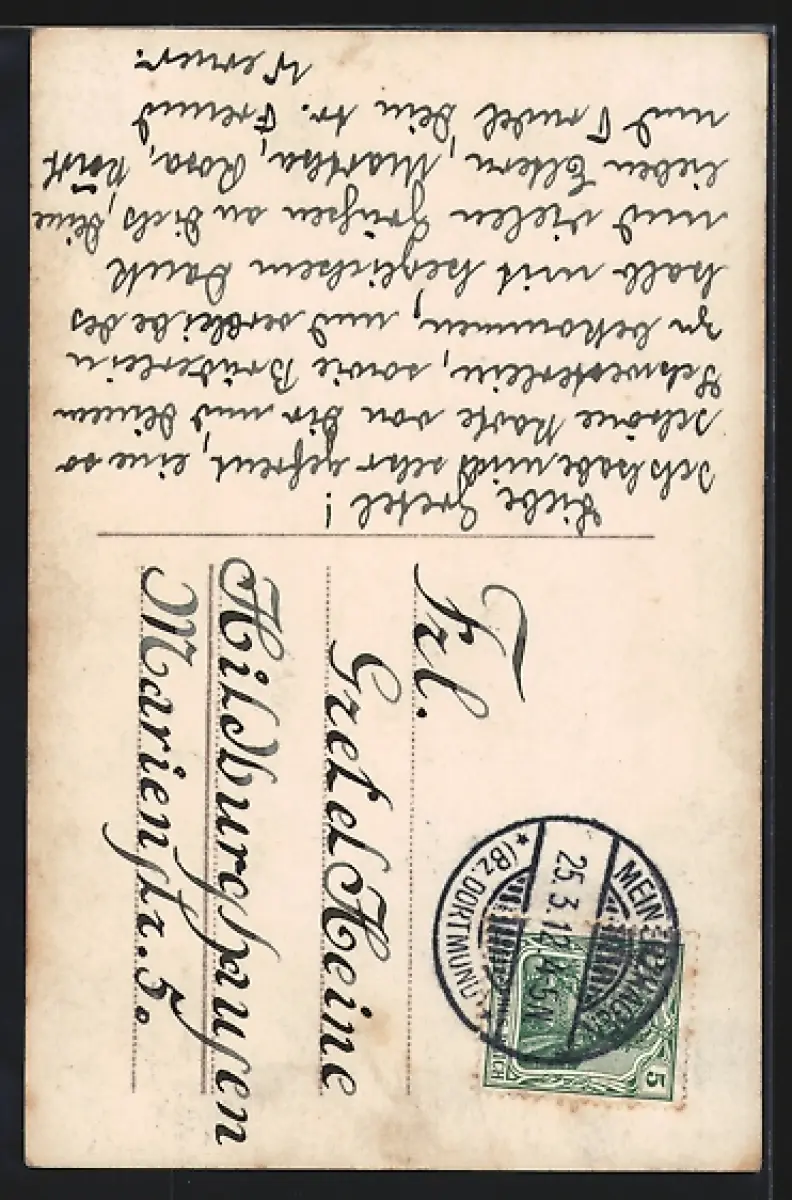 Liebe Gretel!
Ich habe mich sehr gefreut, eine so
schöne Karte von Dir und Deinem
Schwesterlein, sowie Brüderlein
zu bekommen, und verbleibe des
halb mit herzlichem Dank
und vielen Grüßen an Dich, Deine
lieben Eltern, Martha, Rosa,
und Trudel Dein tr. Freund
Werner.
Frl.
Gretel Heine
Hildburghausen
Marienstr. 5.
MEINERZHAGEN
25.3.12 4-5N
*(BZ. DORTMUND)
5